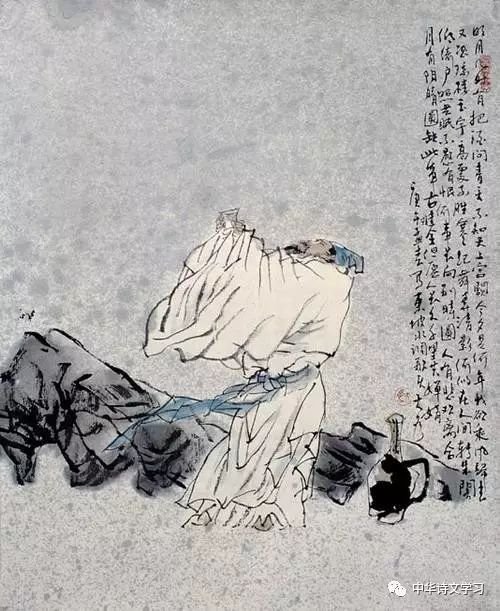 明月幾時有把酒問青天不知天上宮闕今夕是何年我欲乘風歸去
又恐瓊樓玉宇高處不勝寒起舞弄清影何似在人間轉朱閣
低綺戶照無眠不應有恨何事長向別時圓人有悲歡離合
月有陰晴圓缺此事古難全但願人長久千里共嬋娟
庚午 寫東坡水調歌頭
中华诗文学习